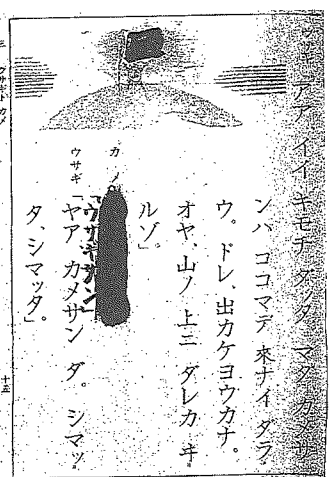 アア イイ キモチ ダッタ。マダ カメサ
ンハ ココマデ 來ナイ ダラ
ウ。ドレ、出カケヨウカナ。
オヤ、山ノ 上ニ ダレカ ヰ
ルゾ」。
カメ「ウサギサン」
ウサギ「ヤア カメサン ダ。シマッ
タ、シマッタ」。
ウサギト カメ
十五